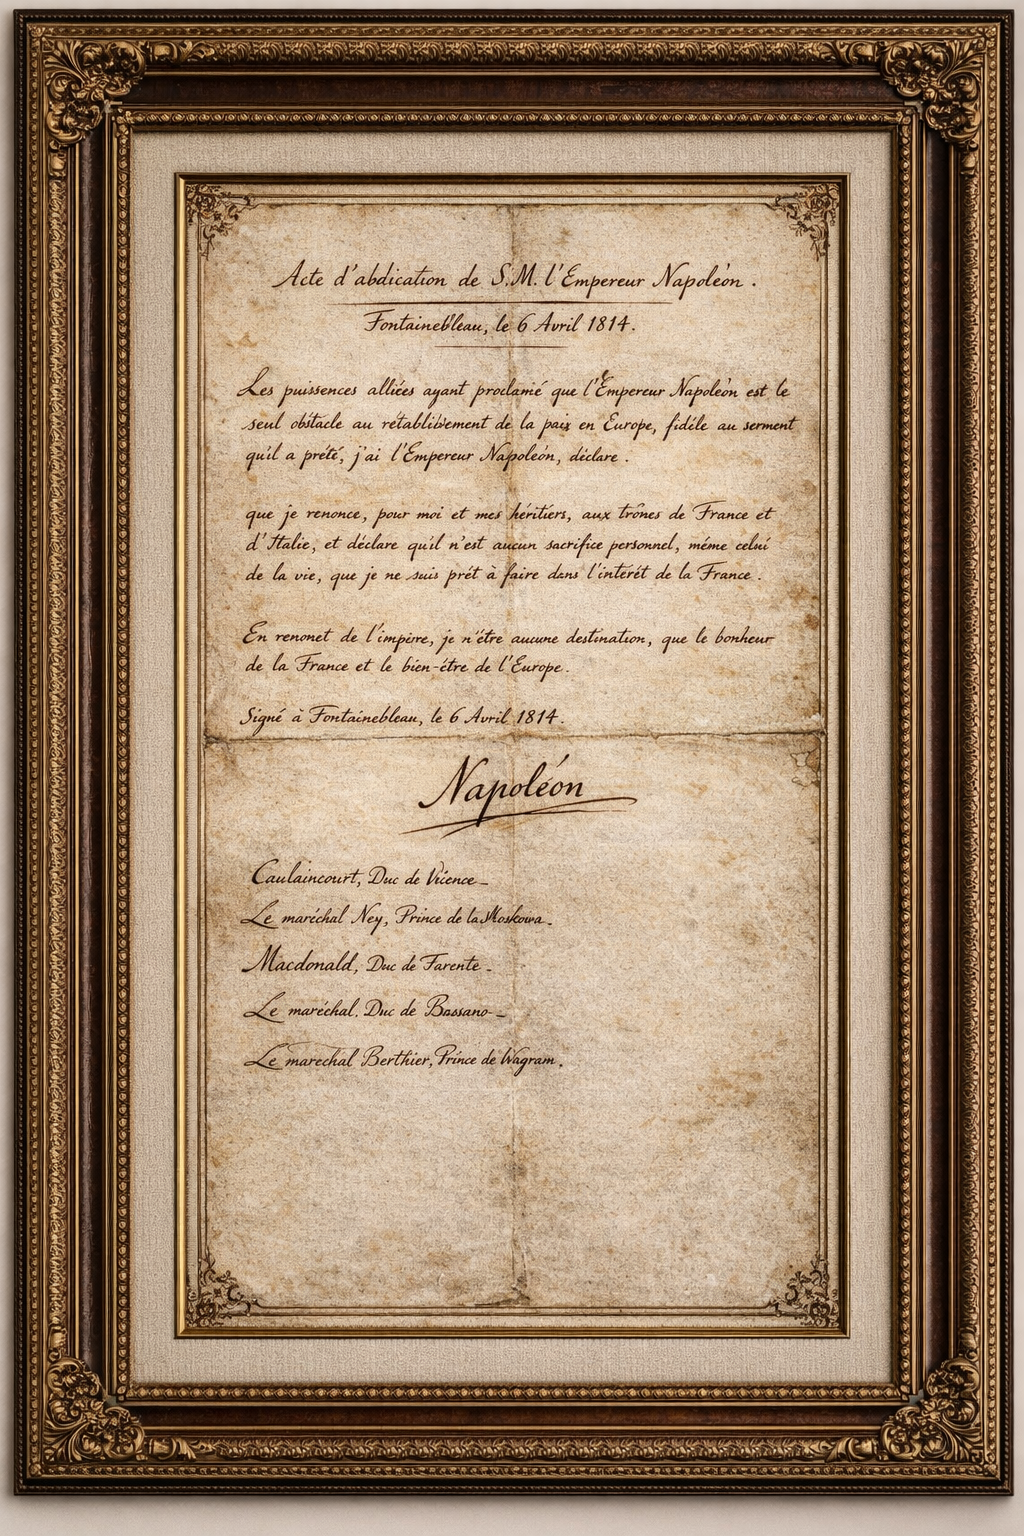 Acte d'abdication de S.M. l'Empereur Napoléon.
Fontainebleau, le 6 Avril 1814.
Les puissences alliées ayant proclamé que l'Empereur Napoléon est le
seul obstacle au rétablibement de la paix en Europe, fidéle au serment
qu'il a prété, j'ai l'Empereur Napoléon, déclare.
que je renonce, pour moi et mes héritiers, aux trônes de France et
d'Italie, et déclare qu'il n'est aucun sacrifice personnel, méme celui
de la vie, que je ne suis prét à faire dans l'intérét de la France.
En renonet de l'impire, je n'étre aucune destination, que le bonheur
de la France et le bien-étre de l'Europe.
Signé à Fontainebleau, le 6 Avril 1814.
Napoléon
Caulaincourt, Duc de Vicence
Le maréchal Ney, Prince de la Moskowa.
Macdonald, Duc de Farente
Le maréchal. Duc de Bassano
Le marechal Berthier, Prince de Wagram.